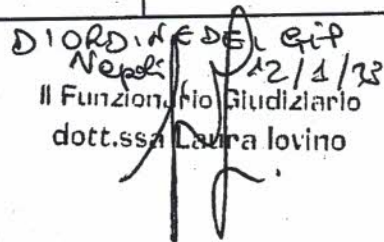 D'ORDINE DEL GIP
Napoli 12/1/23
Il Funzionario Giudiziario
dott.ssa Laura Iovino